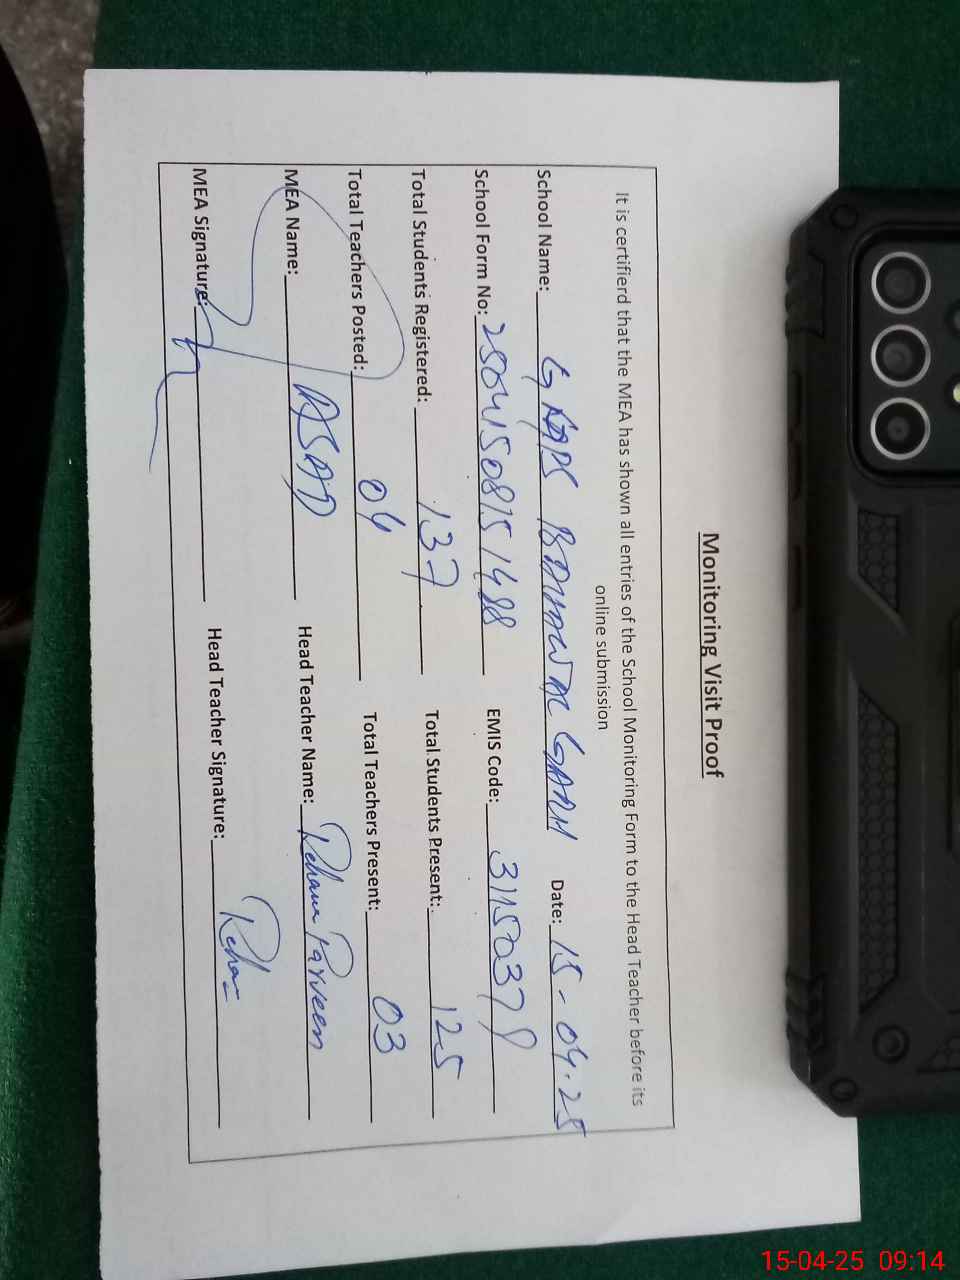 Monitoring Visit Proof
It is certifierd that the MEA has shown all entries of the School Monitoring Form to the Head Teacher before its
online submission
School Name: GARH Date: 15-04-25
School Form No: EMIS Code:
Total Students Registered: 137 Total Students Present: 125
Total Teachers Posted: 04 Total Teachers Present: 03
MEA Name: ASAD Head Teacher Name: Rehana Parveen
MEA Signature: Head Teacher Signature: Rehana
15-04-25 09:14